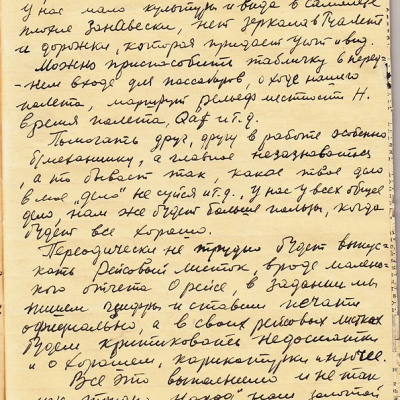 у нас мало культуры и вида в салоне
плохие занавески, нет зеркала в туалете
и дорожки, которая придает уют и вид.
Можно приспособить табличку в перед-
нем входе для пассажиров, о ходе нашего
полета, маршрут рельеф местности Н.
время полета, Qaf и т.д.
Помогать друг, другу в работе особенно
б/механику, а главное незазнаватся
, а то бывает так, какое твое дело
в мое "дело" не суйся и т.д., у нас у всех общее
дело, нам же будет больше пользы, когда
будет все хорошо.
Переодически не трудно будет выпус-
кать Рейсовый листок, вроде малень-
кого отчета о рейсе, в задании мы
пишем цифры и ставим печати
официально, а в своих рейсовых листках
будем критиковать недостатки
и о хорошем, карикатурки и прочее.
Все это выполнимо и не так
наш золотой